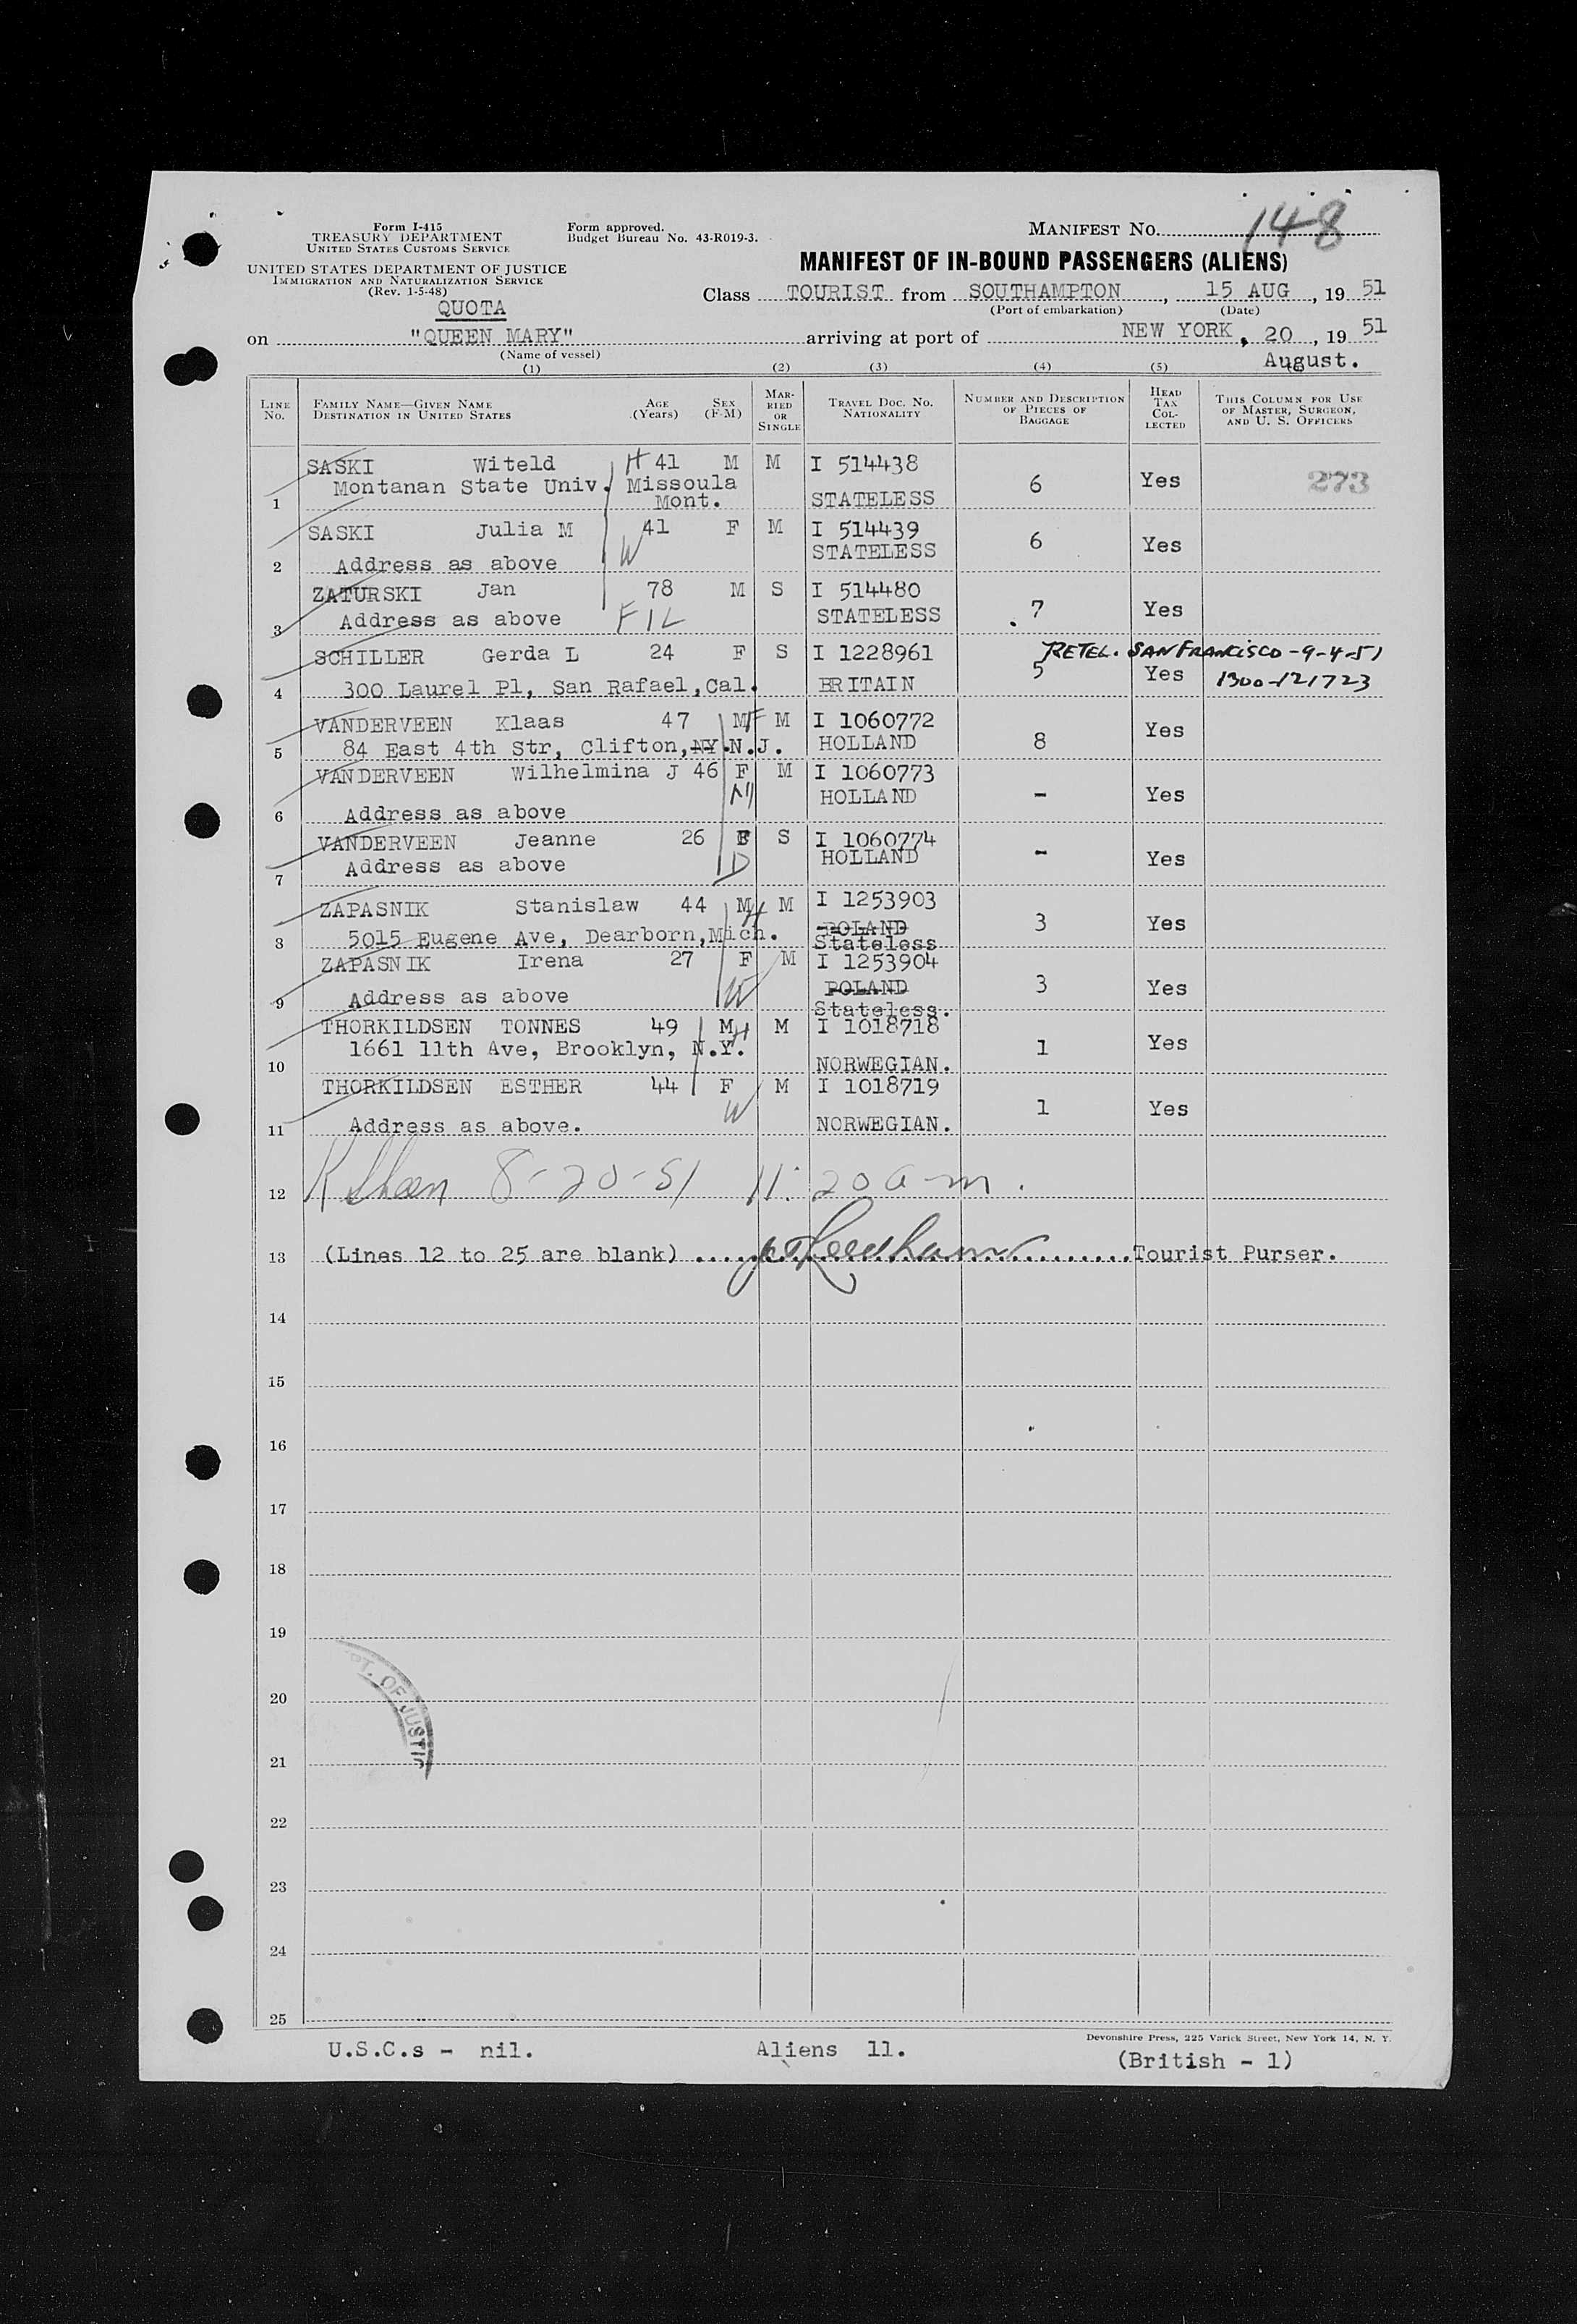 Form I-415
TREASURY DEPARTMENT
UNITED STATES CUSTOMS SERVICE
Form approved.
Budget Bureau No. 43-R019-3.
MANIFEST NO. 148
UNITED STATES DEPARTMENT OF JUSTICE
IMMIGRATION AND NATURALIZATION SERVICE
(Rev. 1-5-48)
QUOTA
MANIFEST OF IN-BOUND PASSENGERS (ALIENS)
Class TOURIST from SOUTHAMPTON, 15 AUG, 19 51
(Port of embarkation) (Date)
on "QUEEN MARY" arriving at port of NEW YORK, 20, 19 51
(Name of vessel) August.
(1) (2) (3) (4) (5)
LINE No. FAMILY NAME—GIVEN NAME DESTINATION IN UNITED STATES AGE (Years) SEX (F-M) MARRIED OR SINGLE TRAVEL DOC. NO. NATIONALITY NUMBER AND DESCRIPTION OF PIECES OF BAGGAGE HEAD TAX COLLECTED THIS COLUMN FOR USE OF MASTER, SURGEON, AND U. S. OFFICERS
SASKI Witeld H 41 M M I 514438
1 Montanan State Univ. Missoula Mont. STATELESS 6 Yes 273
SASKI Julia M 41 F M I 514439
2 Address as above W STATELESS 6 Yes
ZATURSKI Jan 78 M S I 514480
3 Address as above FIL STATELESS 7 Yes
SCHILLER Gerda L 24 F S I 1228961 RETEL. SAN FRANCISCO-9-4-51
4 300 Laurel Pl, San Rafael, Cal. BRITAIN 5 Yes 1300-121723
VANDERVEEN Klaas 47 M F M I 1060772
5 84 East 4th Str, Clifton, NY. N.J. HOLLAND 8 Yes
VANDERVEEN Wilhelmina J 46 F M I 1060773
6 Address as above M HOLLAND - Yes
VANDERVEEN Jeanne 26 F S I 1060774
7 Address as above D HOLLAND - Yes
ZAPASNIK Stanislaw 44 M H M I 1253903
8 5015 Eugene Ave, Dearborn, Mich. POLAND Stateless 3 Yes
ZAPASNIK Irena 27 F M I 1253904
9 Address as above W POLAND Stateless. 3 Yes
THORKILDSEN TONNES 49 M H M I 1018718
10 1661 11th Ave, Brooklyn, N.Y. NORWEGIAN. 1 Yes
THORKILDSEN ESTHER 44 F M I 1018719
11 Address as above. W NORWEGIAN. 1 Yes
12 8-20-51 11:20 a-m.
13 (Lines 12 to 25 are blank) Tourist Purser.
14
15
16
17
18
19
20
PT. OF JUSTIC
21
22
23
24
25
Devonshire Press, 225 Varick Street, New York 14, N. Y.
U.S.C.s - nil. Aliens 11. (British - 1)